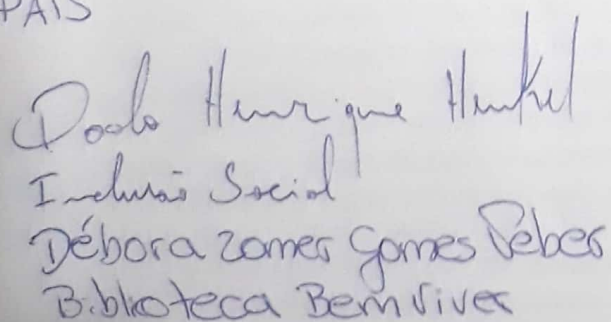 PAIS
Paolo Henrique Henkel
Inclusão Social
Débora Zomer Gomes Peber
Biblioteca Bem Viver